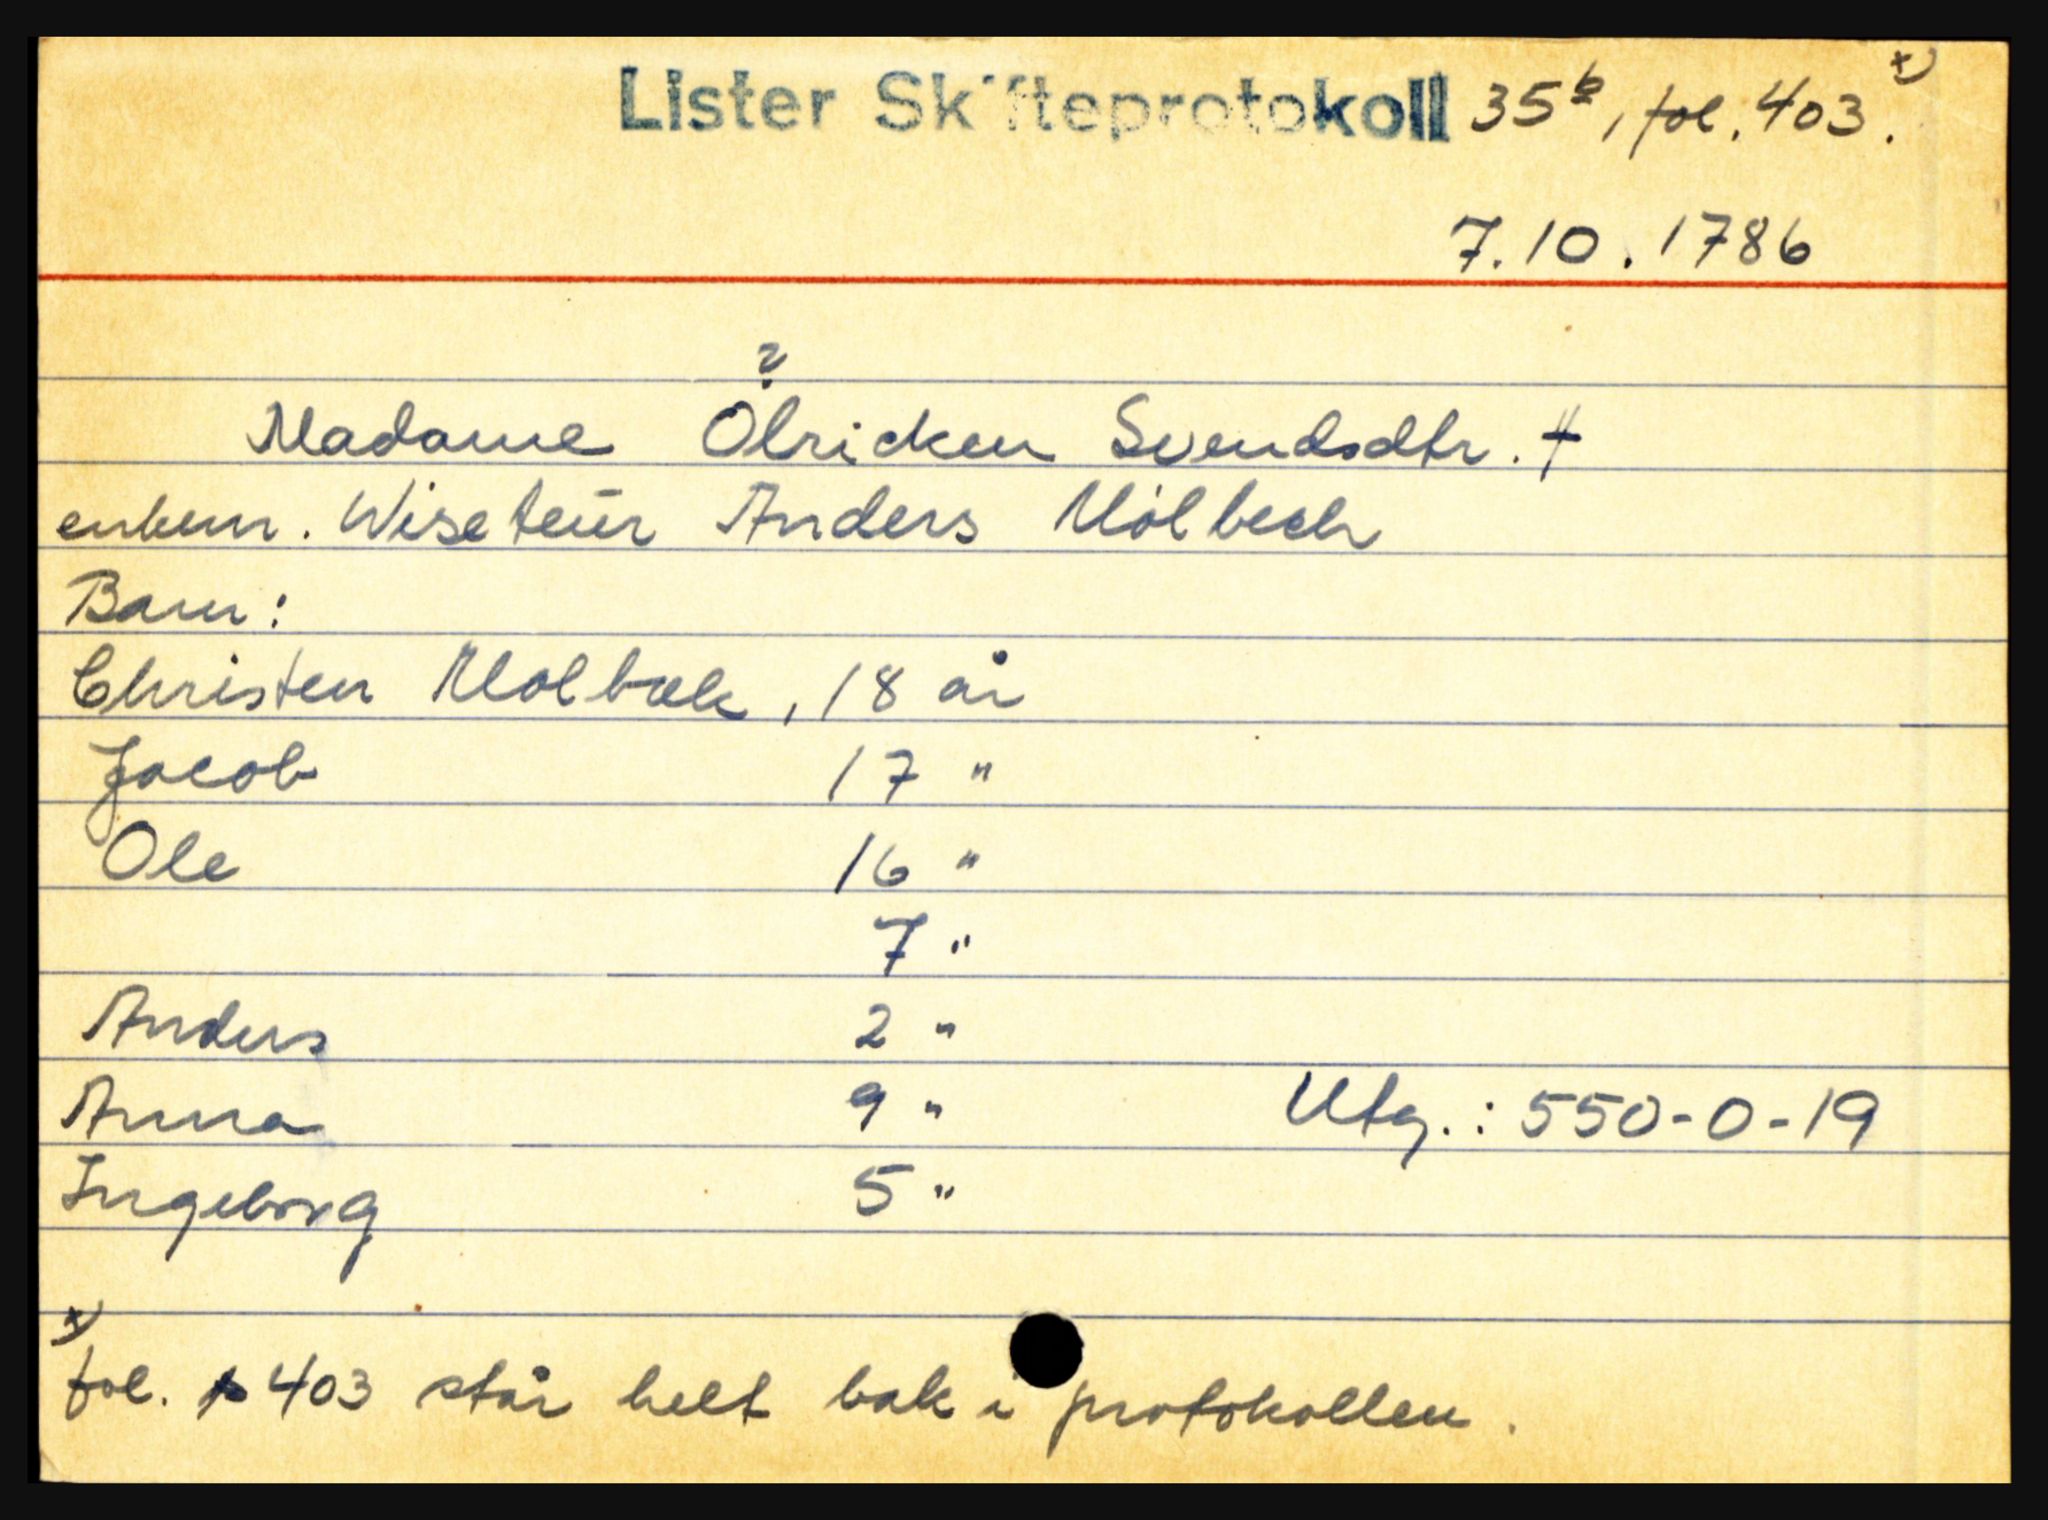 Lister Skifteprotokoll 35b, fol. 403. x)
7.10.1786
?
Madame Ölricken Svendsdtr. †
enkem. Wiseteür Anders Mölbech
Barn:
Christen Molbæk, 18 år
Jacob 17 "
Ole 16 "
7 "
Anders 2 "
Anna 9 "
Utg.: 550-0-19
Ingeborg 5 "
x)
fol. 403 står helt bak i protokollen.